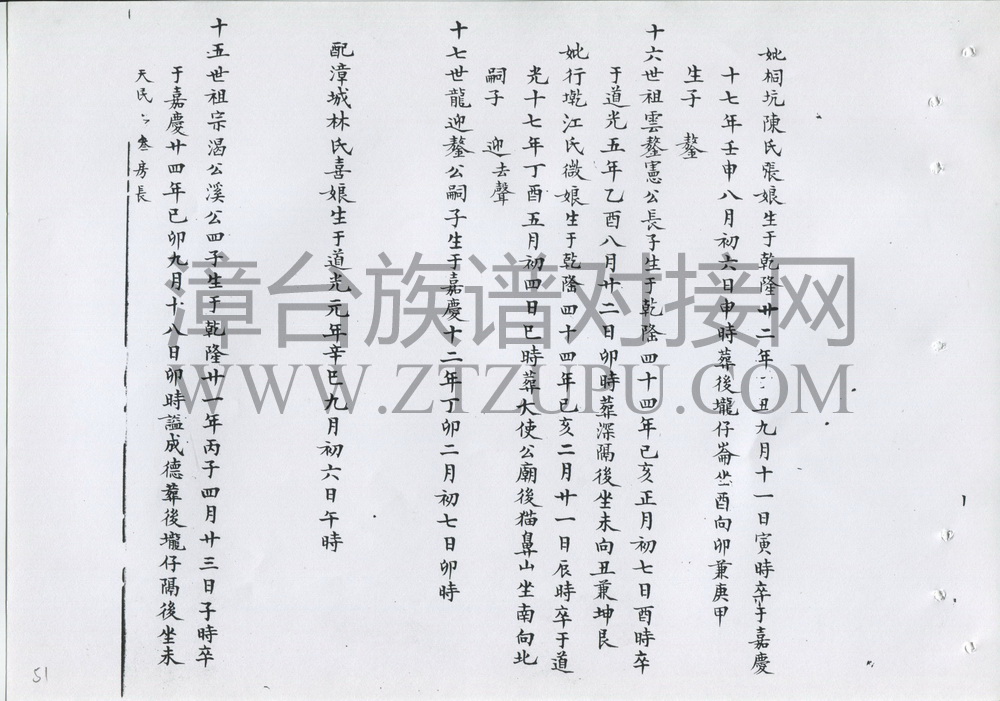 妣桐坑陳氏張娘生于乾隆廿二年丁丑九月十一日寅時卒于嘉慶
十七年壬申八月初六日申時葬後壠仔崙坐酉向卯兼庚甲
生子 鰲
十六世祖雲鰲憲公長子生于乾隆四十四年己亥正月初七日酉時卒
于道光五年乙酉八月廿二日卯時葬深隔後坐未向丑兼坤艮
妣行墘江氏微娘生于乾隆四十四年己亥二月廿一日辰時卒于道
光十七年丁酉五月初四日巳時葬大使公廟後猫鼻山坐南向北
嗣子 迎去聲
十七世龍迎鰲公嗣子生于嘉慶十二年丁卯二月初七日卯時
配漳城林氏喜娘生于道光元年辛巳九月初六日午時
十五世祖宗渴公溪公四子生于乾隆廿一年丙子四月廿三日子時卒
于嘉慶廿四年己卯九月十八日卯時諡成德葬後壠仔隔後坐未
天民公叁房長
51
漳台族谱对接网
WWW.ZTZUPU.COM